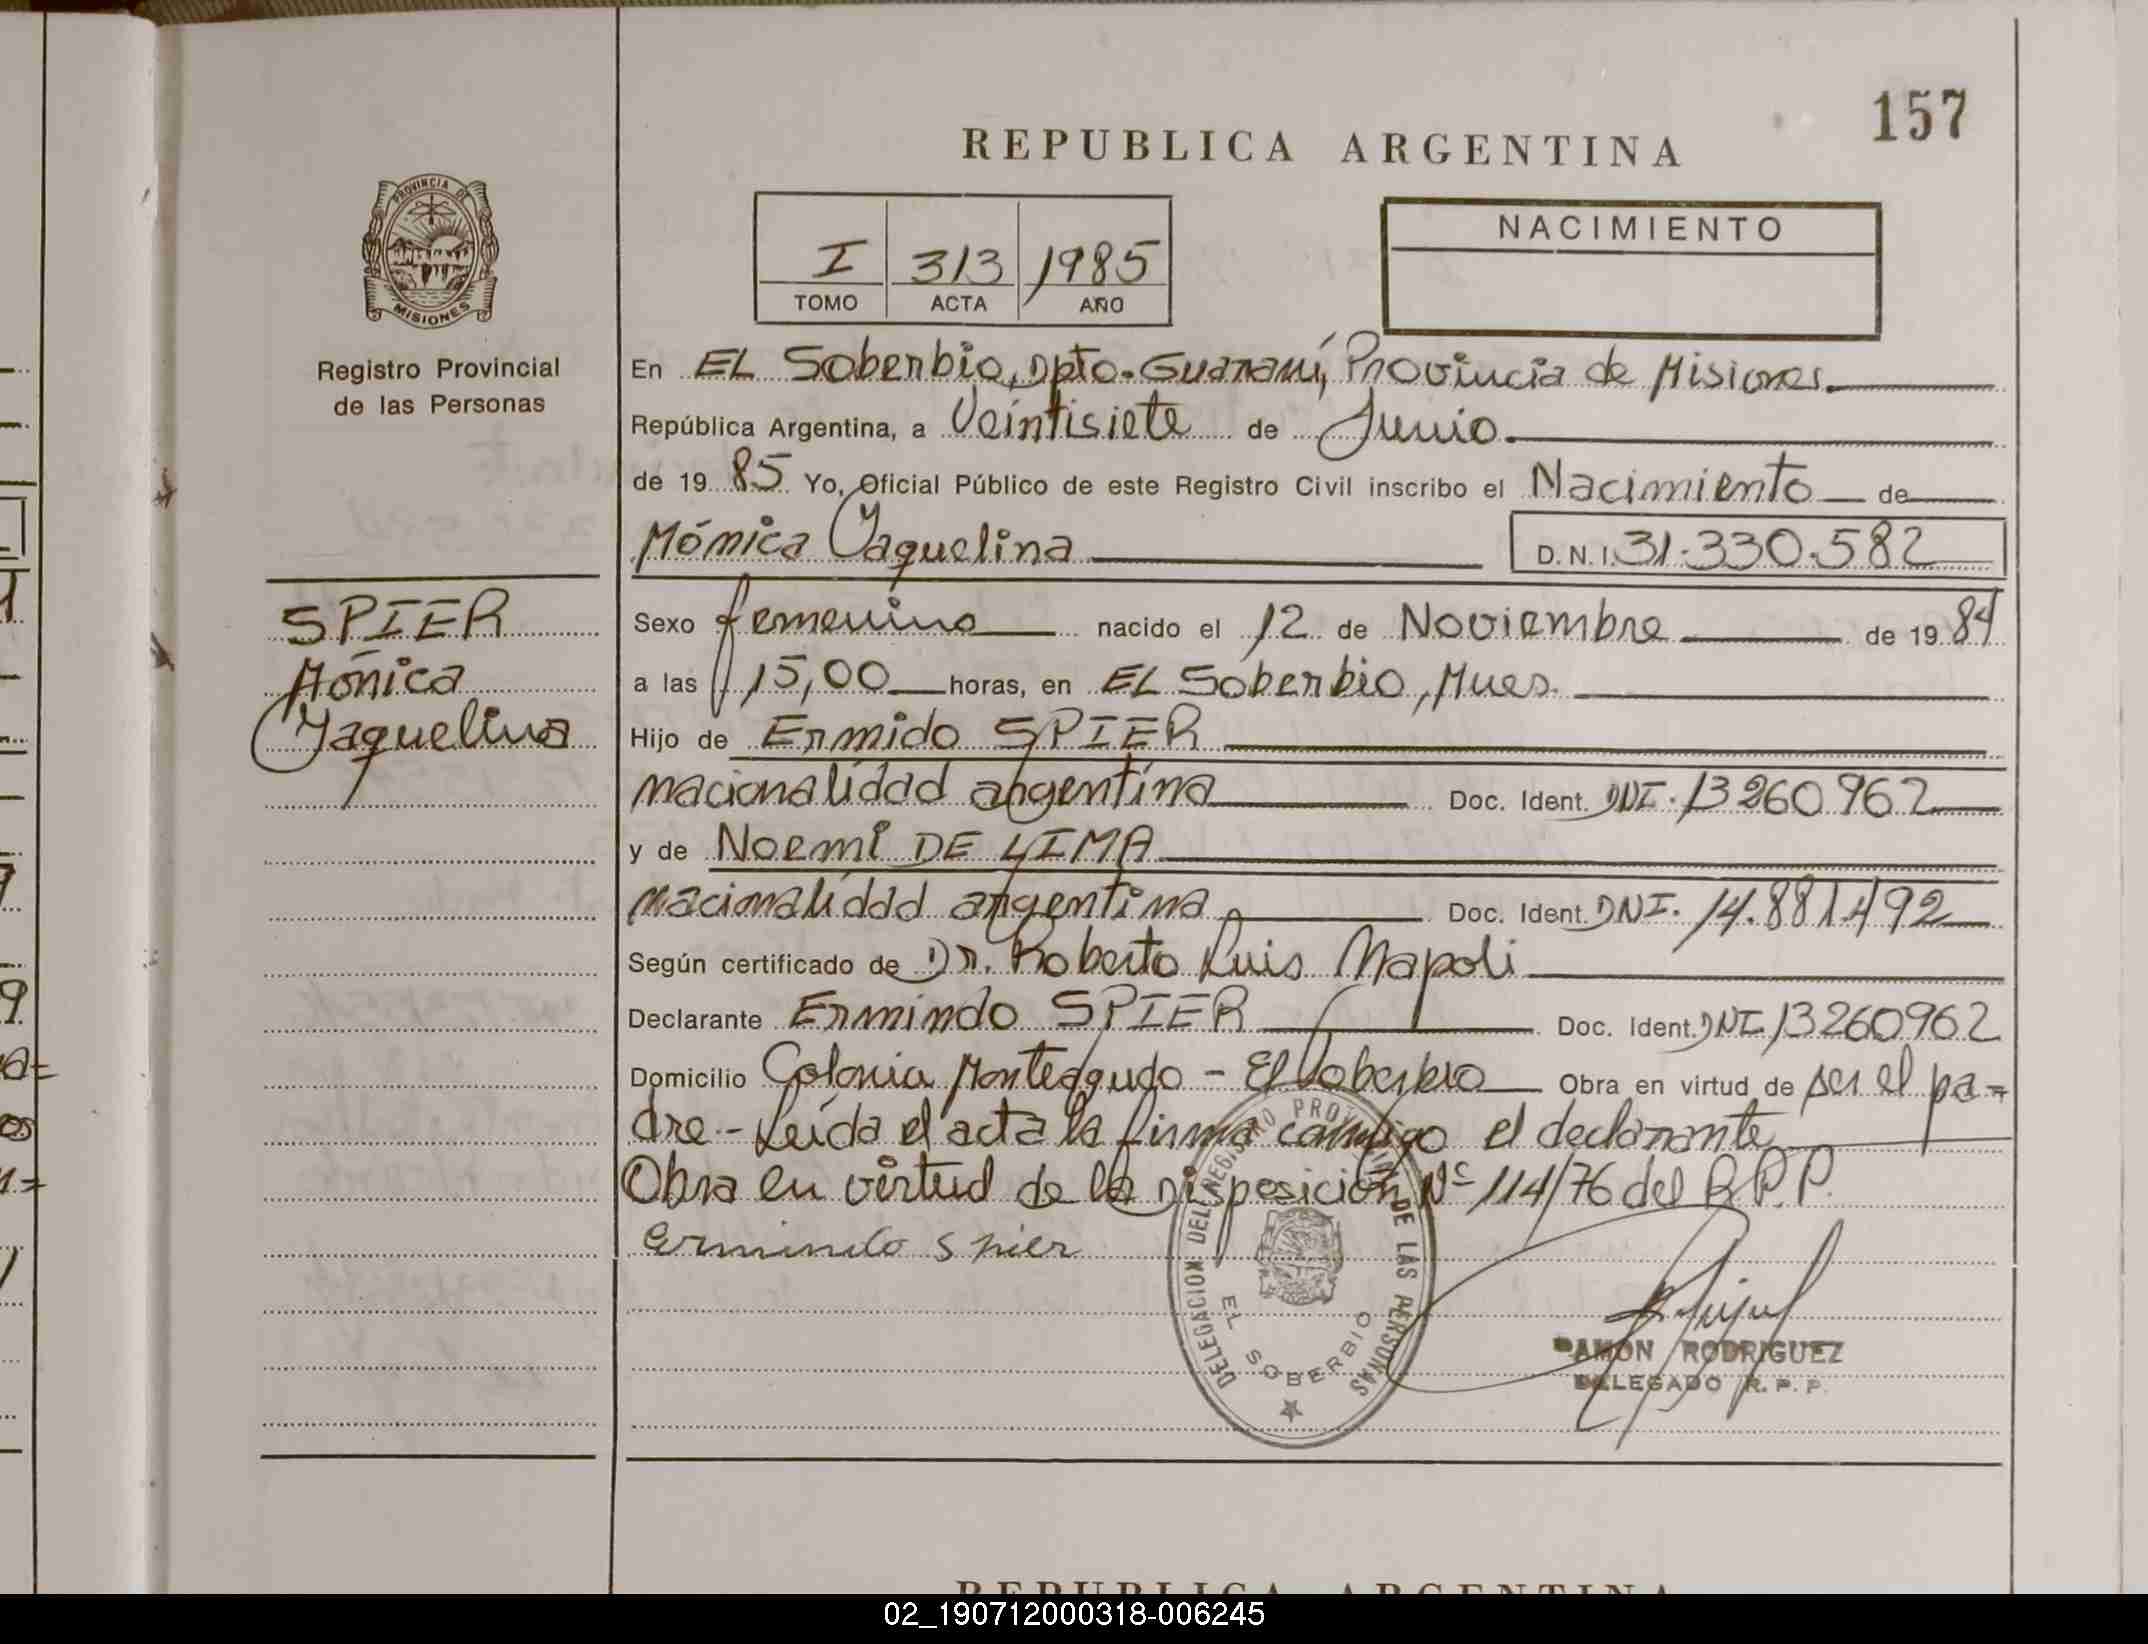 157
REPUBLICA ARGENTINA
PROVINCIA DE
MISIONES
Registro Provincial
de las Personas
I 313 1985
TOMO ACTA AÑO
NACIMIENTO
En EL Soberbio, Dpto. Guaraní, Provincia de Misiones.
República Argentina, a Veintisiete de Junio.
de 1985 Yo, Oficial Público de este Registro Civil inscribo el Nacimiento de
Mónica Yaquelina D.N.I. 31.330.582
SPIER
Mónica
Yaquelina
Sexo femenino nacido el 12 de Noviembre de 1984
a las 15,00 horas, en EL Soberbio, Mnes.
Hijo de Ermido SPIER
nacionalidad argentina Doc. Ident. DNI. 13260962
y de Noemi DE LIMA
nacionalidad argentina Doc. Ident. DNI. 14.881.492
Según certificado de Dr. Roberto Luis Napoli
Declarante Ermindo SPIER Doc. Ident. DNI. 13260962
Domicilio Colonia Monteagudo - El Soberbio Obra en virtud de ser el pa=
dre.- Leída el acta la firma conmigo el declarante
Obra en virtud de la Disposición Nº 114/76 del R.P.P.
erminilo spier
DELEGACION DEL REGISTRO PROVINCIAL DE LAS PERSONAS
EL SOBERBIO
RAMON RODRIGUEZ
DELEGADO R. P. P.
REPUBLICA ARGENTINA
02_190712000318-006245